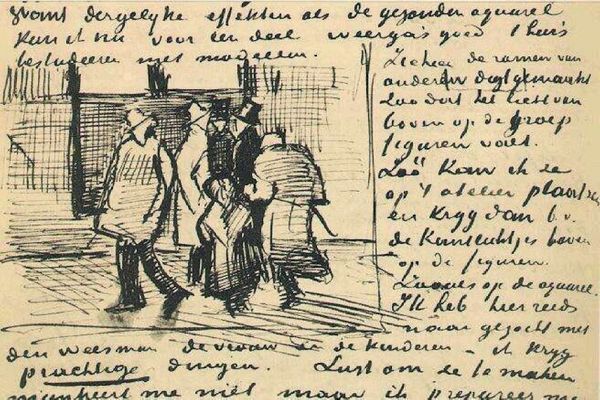 want dergelyke effekten als de gezonden aquarel
kan ik nu voor een deel weergas goed thuis
bestudeeren met modellen.
Ik heb de ramen van
onderen digt gemaakt
Zoodat het licht van
boven op de groep
figuren valt.
Zóó kan ik ze
op 't atelier plaatsen
en kryg dan b.v.
de kantlichtjes boven
op de figuren.
Zooals op de aquarel.
Ik heb hier reeds
naar gezocht met
den weesman de vrouw en de kinderen – ik kryg
prachtige dingen. Lust om ze te maken
mankeert me niet maar ik prepareer me